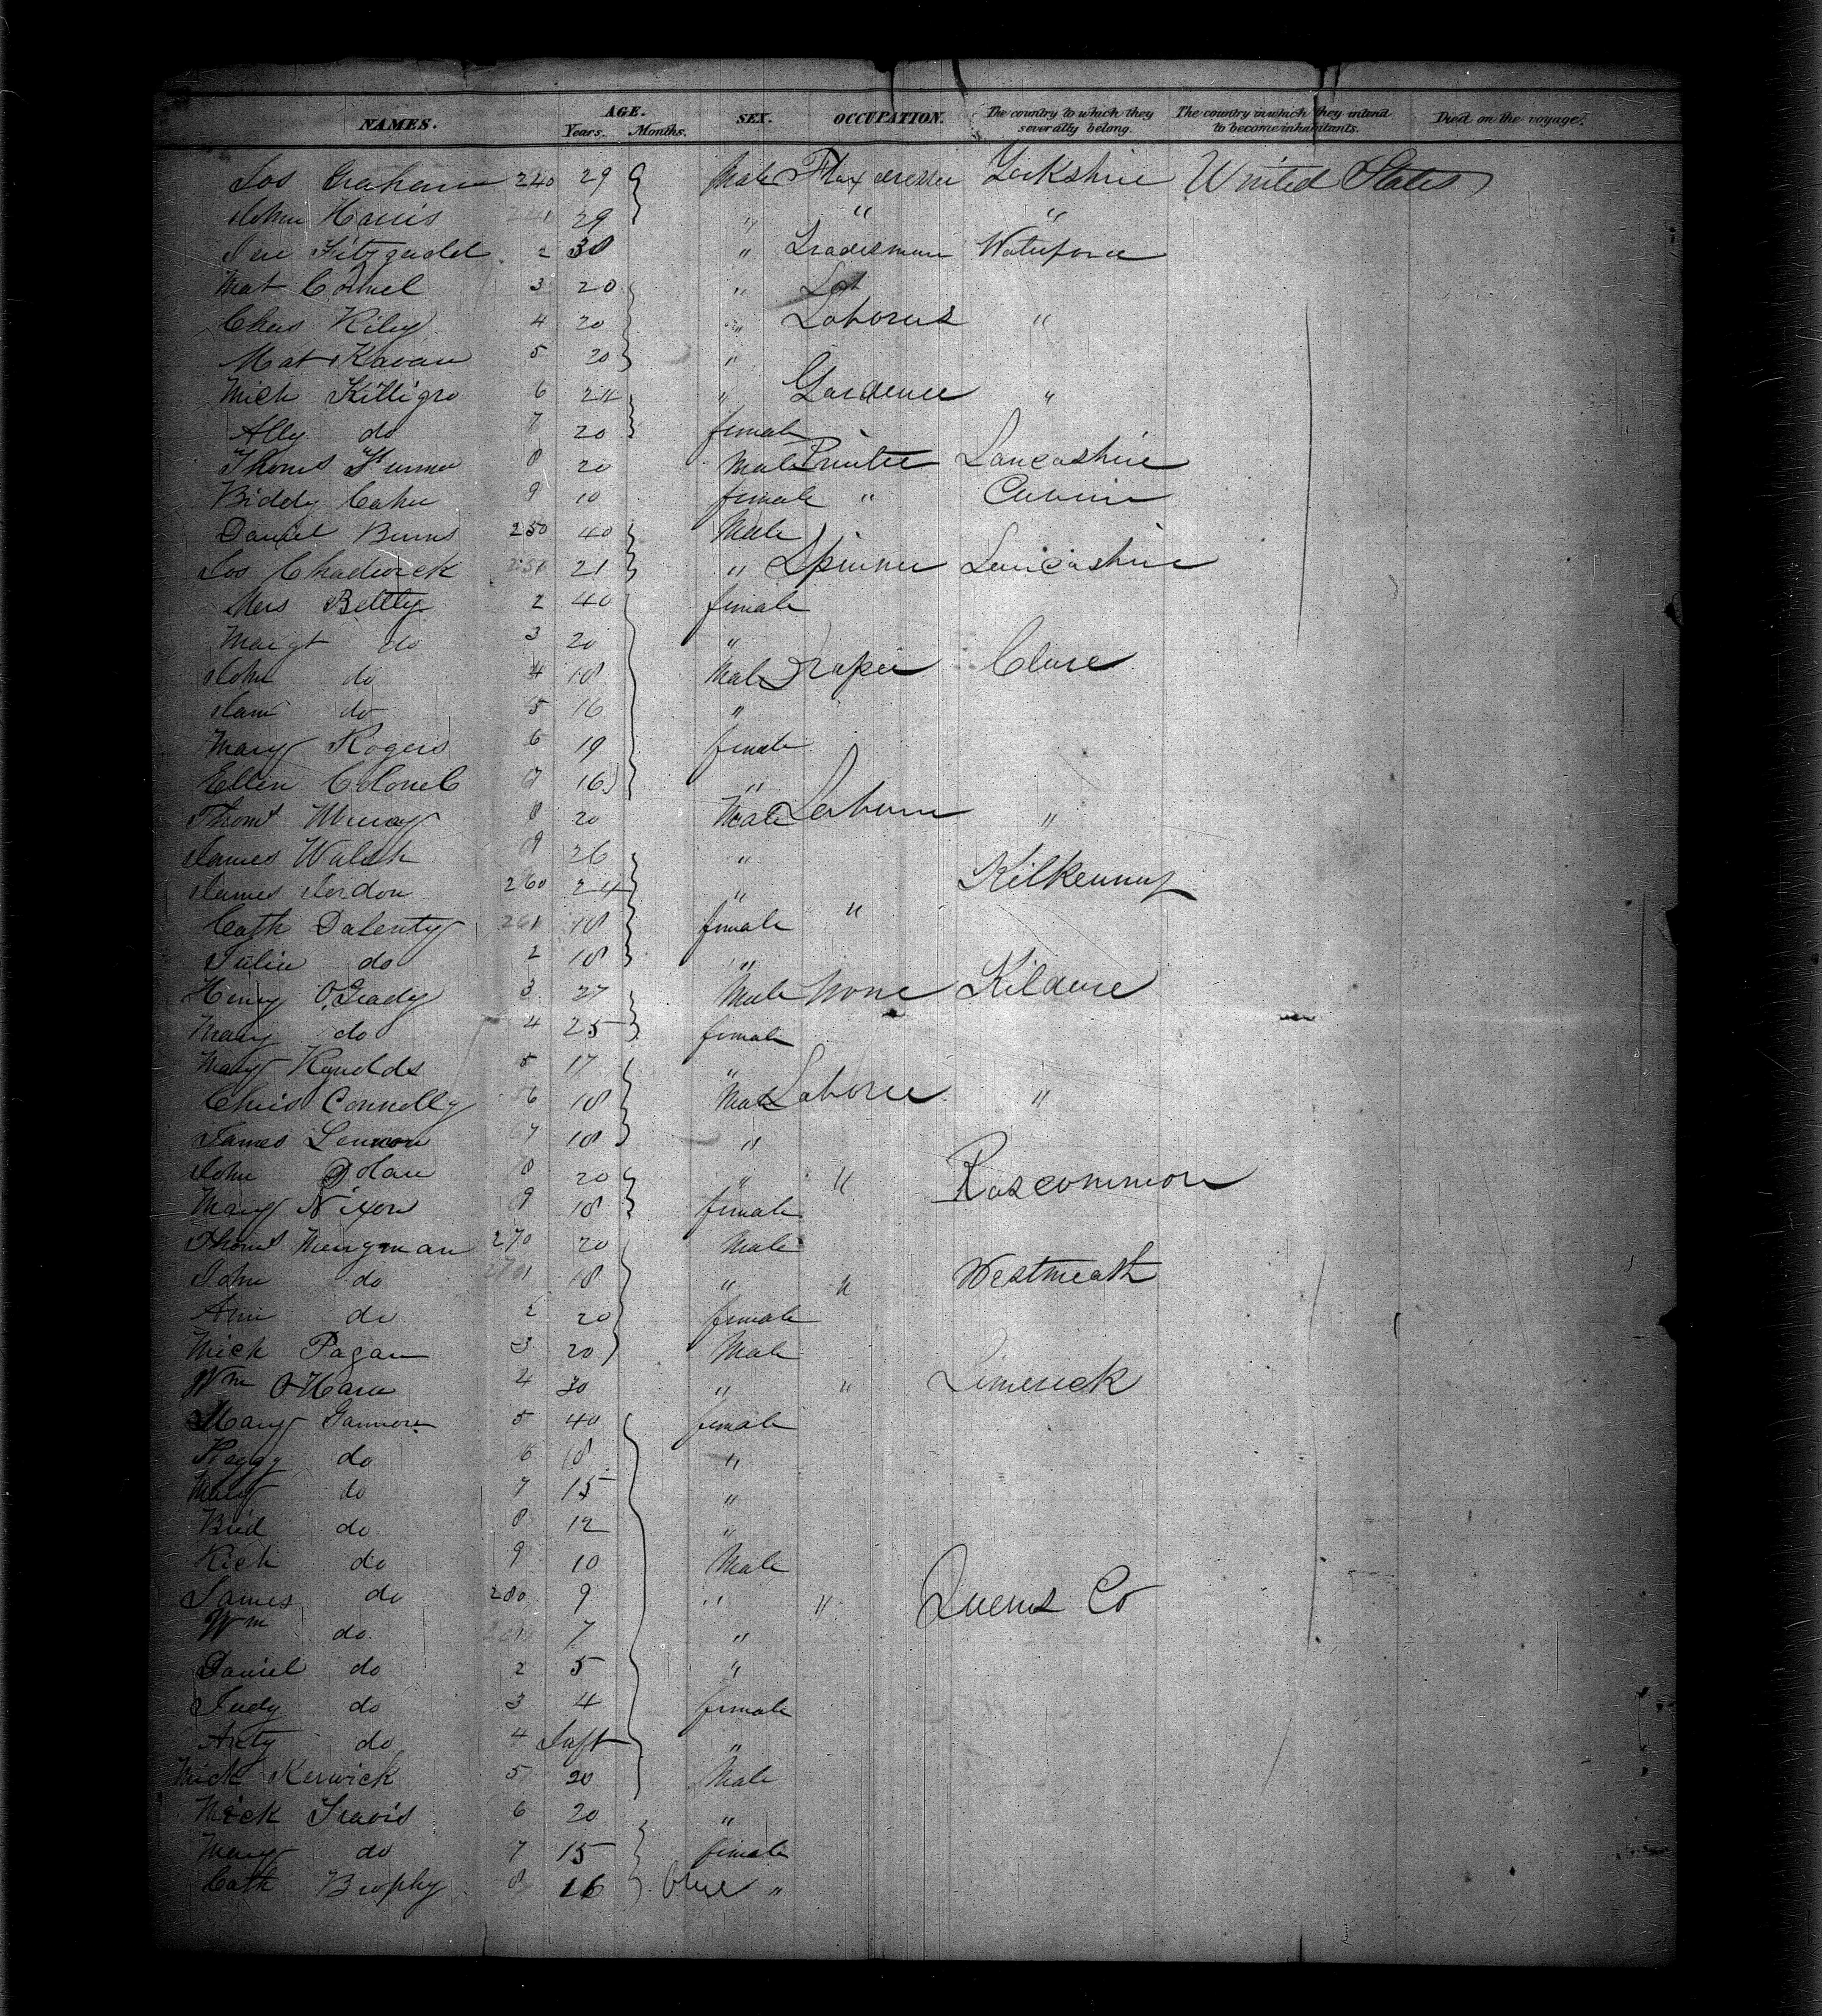 NAMES. AGE. Years. Months. SEX. OCCUPATION. The country to which they severally belong. The country in which they intend to become inhabitants. Died on the voyage.
Jos Graham 240 29 Male Flax dresser Yorkshire United States
John Harris 241 29 " " "
Fitzgerald 2 30 " Tradesman Waterford
Mat 3 20 "
Chas Kiley 4 20 " Laborers "
Mat Kavan 5 20 "
Mich Killigro 6 24 " Gardener "
Ally do 7 20 female
Thoms 8 20 Male Printer Lancashire
Biddy Cahn 9 10 female "
Daniel Burns 250 40 Male
Jos Chadwick 251 21 " Spinner Lancashire
Mrs Bettty 2 40 female
Margt do 3 20 "
John do 4 18 Male Draper Clare
Sam do 5 16 "
Mary Rogers 6 19 female
Ellen 7 16 "
Thoms Murray 8 20 Male Laborer "
James Walsh 9 26 "
James Jordon 260 24 " Kilkenny
Cath Dalenty 261 18 female "
Julia do 2 18 "
Henry O'Grady 3 27 Male None Kildare
Mary do 4 25 female
Mary Kynolds 5 17 "
Chris Connolly 6 18 Male Laborer "
James Lennon 67 18 "
John Dolan 8 20 " " Roscommon
Mary Nixon 9 18 female
Thoms Mengman 270 20 Male
John do 2701 18 " " Westmeath
Ann do 2 20 female
Mich Pagan 3 20 Male
Wm O'Hara 4 30 " " Limerick
Mary Gannon 5 40 female
Peggy do 6 18 "
Mary do 7 15 "
Brid do 8 12 "
Rich do 9 10 Male
James do 280 9 " " Queens Co
Wm do 7 "
Daniel do 2 5 "
Judy do 3 4 female
Anty do 4 Inft "
Mick Kerwick 5 20 Male
Mick Travis 6 20 "
Mary do 7 15 female
Cath Brophy 8 16 "